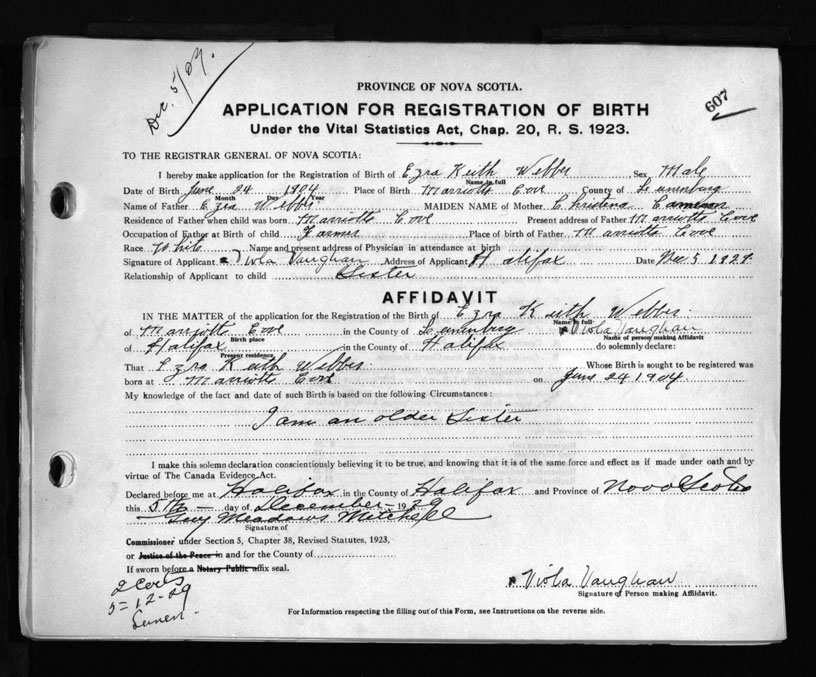 Dec. 5/29.
607
PROVINCE OF NOVA SCOTIA.
APPLICATION FOR REGISTRATION OF BIRTH
Under the Vital Statistics Act, Chap. 20, R. S. 1923.
TO THE REGISTRAR GENERAL OF NOVA SCOTIA:
I hereby make application for the Registration of Birth of Ezra Keith Webber Sex Male
Name in full
Date of Birth June 24 1904 Place of Birth Marriotts Cove County of Lunenburg
Month Day Year
Name of Father Ezra Webber MAIDEN NAME of Mother Christena Cameron
Residence of Father when child was born Marriotts Cove Present address of Father Marriotts Cove
Occupation of Father at Birth of child Farmer Place of birth of Father Marriotts Cove
Race White Name and present address of Physician in attendance at birth
Signature of Applicant x Viola Vaughan Address of Applicant Halifax Date Dec 5 1929.
Relationship of Applicant to child Sister
AFFIDAVIT
IN THE MATTER of the application for the Registration of the Birth of Ezra Keith Webber
Name in full
of Marriotts Cove in the County of Lunenburg x Viola Vaughan
Birth place Name of person making Affidavit
of Halifax in the County of Halifax do solemnly declare:
Present residence
That Ezra Keith Webber Whose Birth is sought to be registered was
born at Marriotts Cove on June 24 1904
My knowledge of the fact and date of such Birth is based on the following Circumstances:
I am an older Sister
I make this solemn declaration conscientiously believing it to be true, and knowing that it is of the same force and effect as if made under oath and by
virtue of The Canada Evidence Act.
Declared before me at Halifax in the County of Halifax and Province of Nova Scotia
this 5th day of December 1929
Guy Meadows Mitchell
Signature of
Commissioner under Section 5, Chapter 38, Revised Statutes, 1923,
or Justice of the Peace in and for the County of
If sworn before a Notary Public affix seal.
x Viola Vaughan
Signature of Person making Affidavit.
5-12-29
For Information respecting the filling out of this Form, see Instructions on the reverse side.